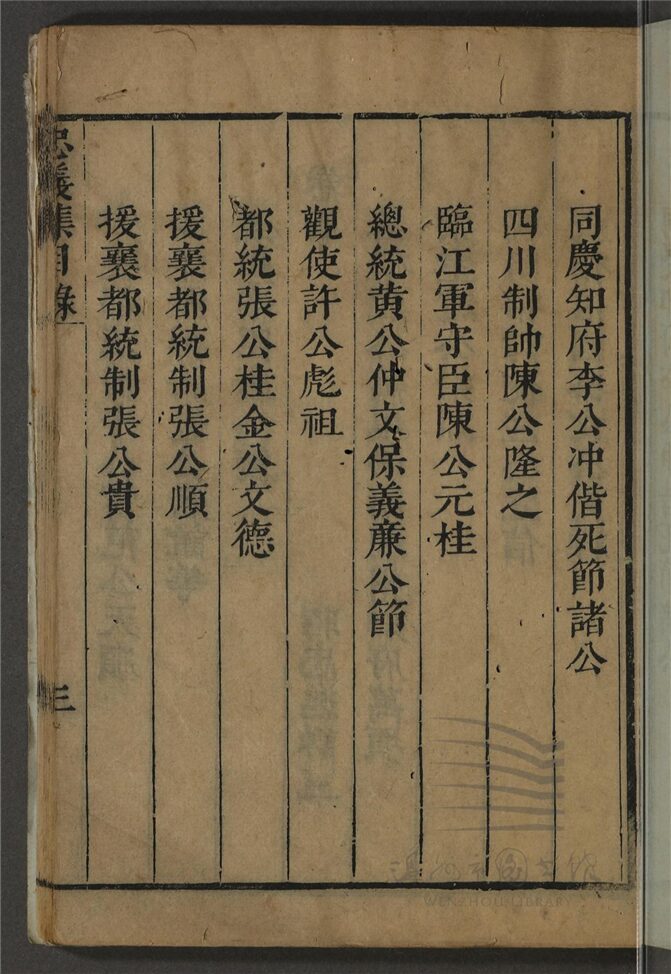 同慶知府李公冲偕死節諸公
四川制帥陳公隆之
臨江軍守臣陳公元桂
總統黄公仲文保義㢘公節
觀使許公彪祖
都統張公桂金公文德
援襄都統制張公順
援襄都統制張公貴
忠義集目錄
三
WENZHOU LIBRARY